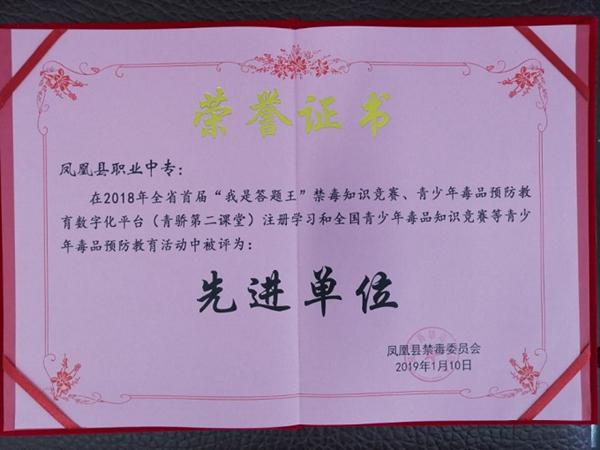 荣誉证书
凤凰县职业中专：
在2018年全省首届“我是答题王”禁毒知识竞赛、青少年毒品预防教
育数字化平台（青骄第二课堂）注册学习和全国青少年毒品知识竞赛等青少
年毒品预防教育活动中被评为：
先进单位
凤凰县禁毒委员会
2019年1月10日